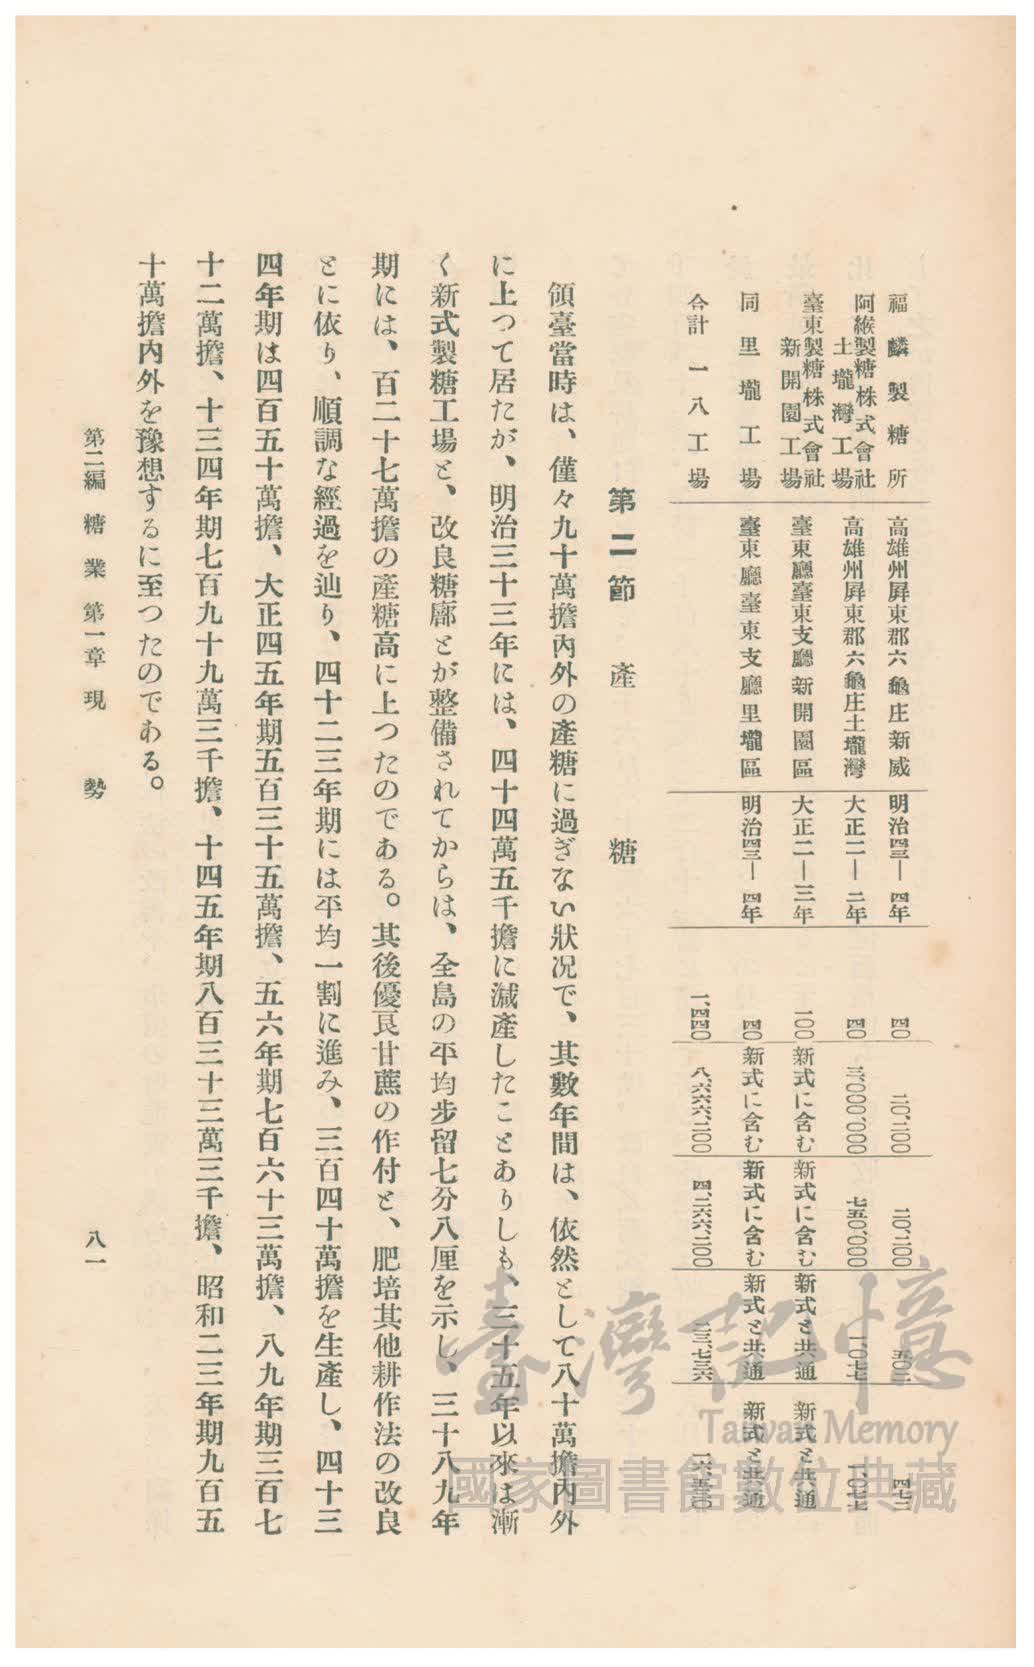 福麟製糖所 高雄州屏東郡六龜庄新威 明治四三—四四年 四〇 二〇、二〇〇 二〇、二〇〇 五〇二 四七二
阿緱製糖株式會社土壠灣工場 高雄州屏東郡六龜庄土壠灣 大正二—二年 四〇 三〇〇〇、〇〇〇 七五〇、〇〇〇 一、〇七七 一、〇七七
臺東製糖株式會社新開園工場 臺東廳臺東支廳新開園區 大正二—三年 一〇〇 新式に含む 新式に含む 新式と共通 新式と共通
同里壠工場 臺東廳臺東支廳里壠區 明治四三—四四年 四〇 新式に含む 新式に含む 新式と共通 新式と共通
合計 一八工場 一、四四〇 八、六六六、二〇〇 四、二六六、二〇〇 二三、七三六 一六、五三〇
第二節 產糖
領臺當時は、僅々九十萬擔內外の產糖に過ぎない狀況で、其數年間は、依然として八十萬擔內外
に上つて居たが、明治三十三年には、四十四萬五千擔に減產したことありしも、三十五年以來は漸
く新式製糖工場と、改良糖廍とが整備されてからは、全島の平均步留七分八厘を示し、三十八九年
期には、百二十七萬擔の產糖高に上つたのである。其後優良甘蔗の作付と、肥培其他耕作法の改良
とに依り、順調な經過を辿り、四十二三年期には平均一割に進み、三百四十萬擔を生產し、四十三
四年期は四百五十萬擔、大正四五年期五百三十五萬擔、五六年期七百六十三萬擔、八九年期三百七
十二萬擔、十三四年期七百九十九萬三千擔、十四五年期八百三十三萬三千擔、昭和二三年期九百五
十萬擔內外を豫想するに至つたのである。
第二編 糖業 第一章 現勢
八一
臺灣記憶
Taiwan Memory
國家圖書館數位典藏